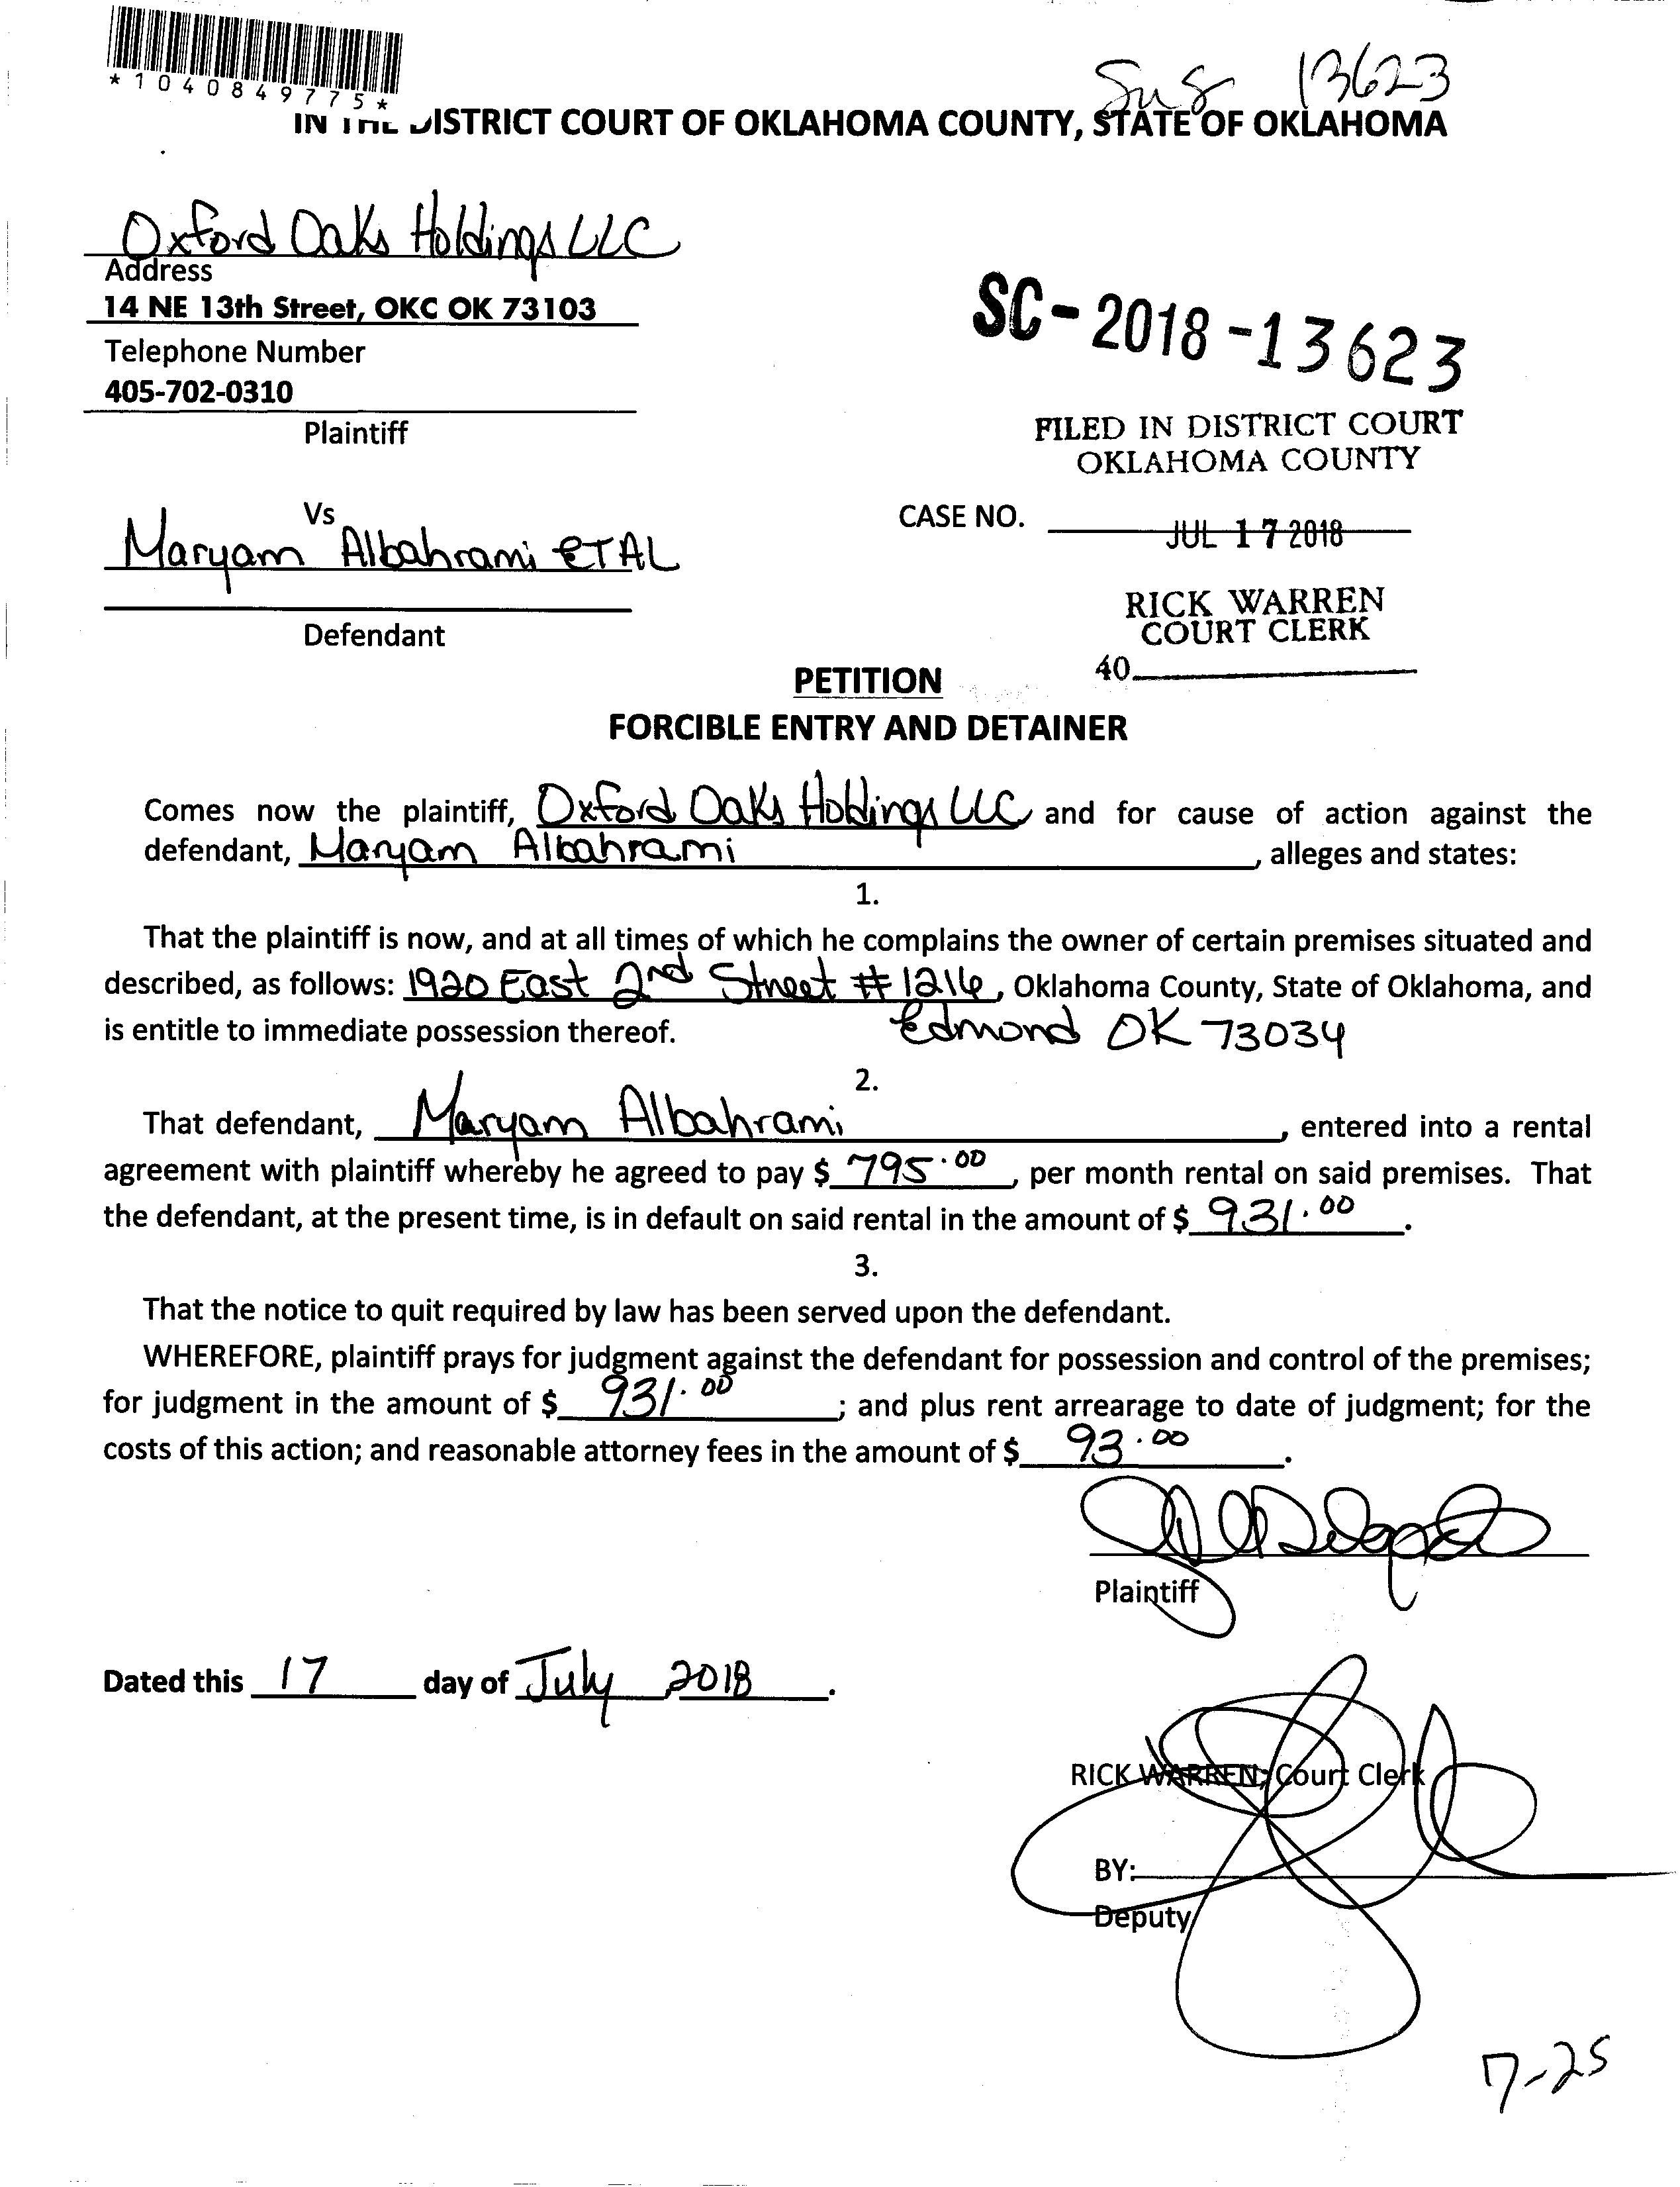 *1040849775*
Sus 13623
IN THE DISTRICT COURT OF OKLAHOMA COUNTY, STATE OF OKLAHOMA
Oxford Oaks Holdings LLC
Address
14 NE 13th Street, OKC OK 73103
Telephone Number
405-702-0310
Plaintiff
SC-2018-13623
FILED IN DISTRICT COURT
OKLAHOMA COUNTY
Vs
CASE NO.
JUL 17 2018
Maryam Albahrami ETAL
RICK WARREN
COURT CLERK
Defendant
40
PETITION
FORCIBLE ENTRY AND DETAINER
Comes now the plaintiff, Oxford Oaks Holdings LLC and for cause of action against the
defendant, Maryam Albahrami, alleges and states:
1.
That the plaintiff is now, and at all times of which he complains the owner of certain premises situated and
described, as follows: 1920 East 2nd Street #1216, Oklahoma County, State of Oklahoma, and
is entitle to immediate possession thereof. Edmond OK 73034
2.
That defendant, Maryam Albahrami, entered into a rental
agreement with plaintiff whereby he agreed to pay $ 795.00, per month rental on said premises. That
the defendant, at the present time, is in default on said rental in the amount of $ 931.00.
3.
That the notice to quit required by law has been served upon the defendant.
WHEREFORE, plaintiff prays for judgment against the defendant for possession and control of the premises;
for judgment in the amount of $ 931.00; and plus rent arrearage to date of judgment; for the
costs of this action; and reasonable attorney fees in the amount of $ 93.00.
Plaintiff
Dated this 17 day of July 2018.
RICK WARREN, Court Clerk
BY:
Deputy
7-25